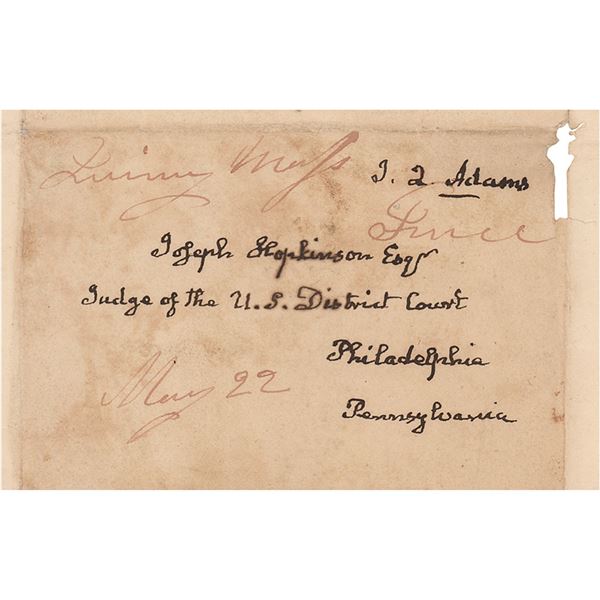 Quincy Mass
J. Q. Adams
Free
Joseph Hopkinson Esqr
Judge of the U. S. District Court
Philadelphia
May 22
Pennsylvania